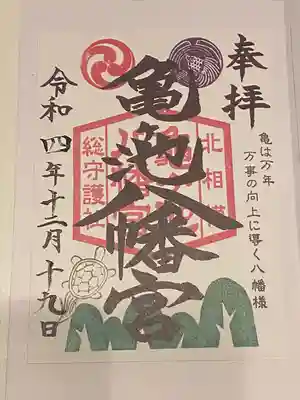 奉拝
亀は万年
万事の向上に導く八幡様
亀ヶ池八幡宮
北相模
総守護社
令和四年十二月十九日